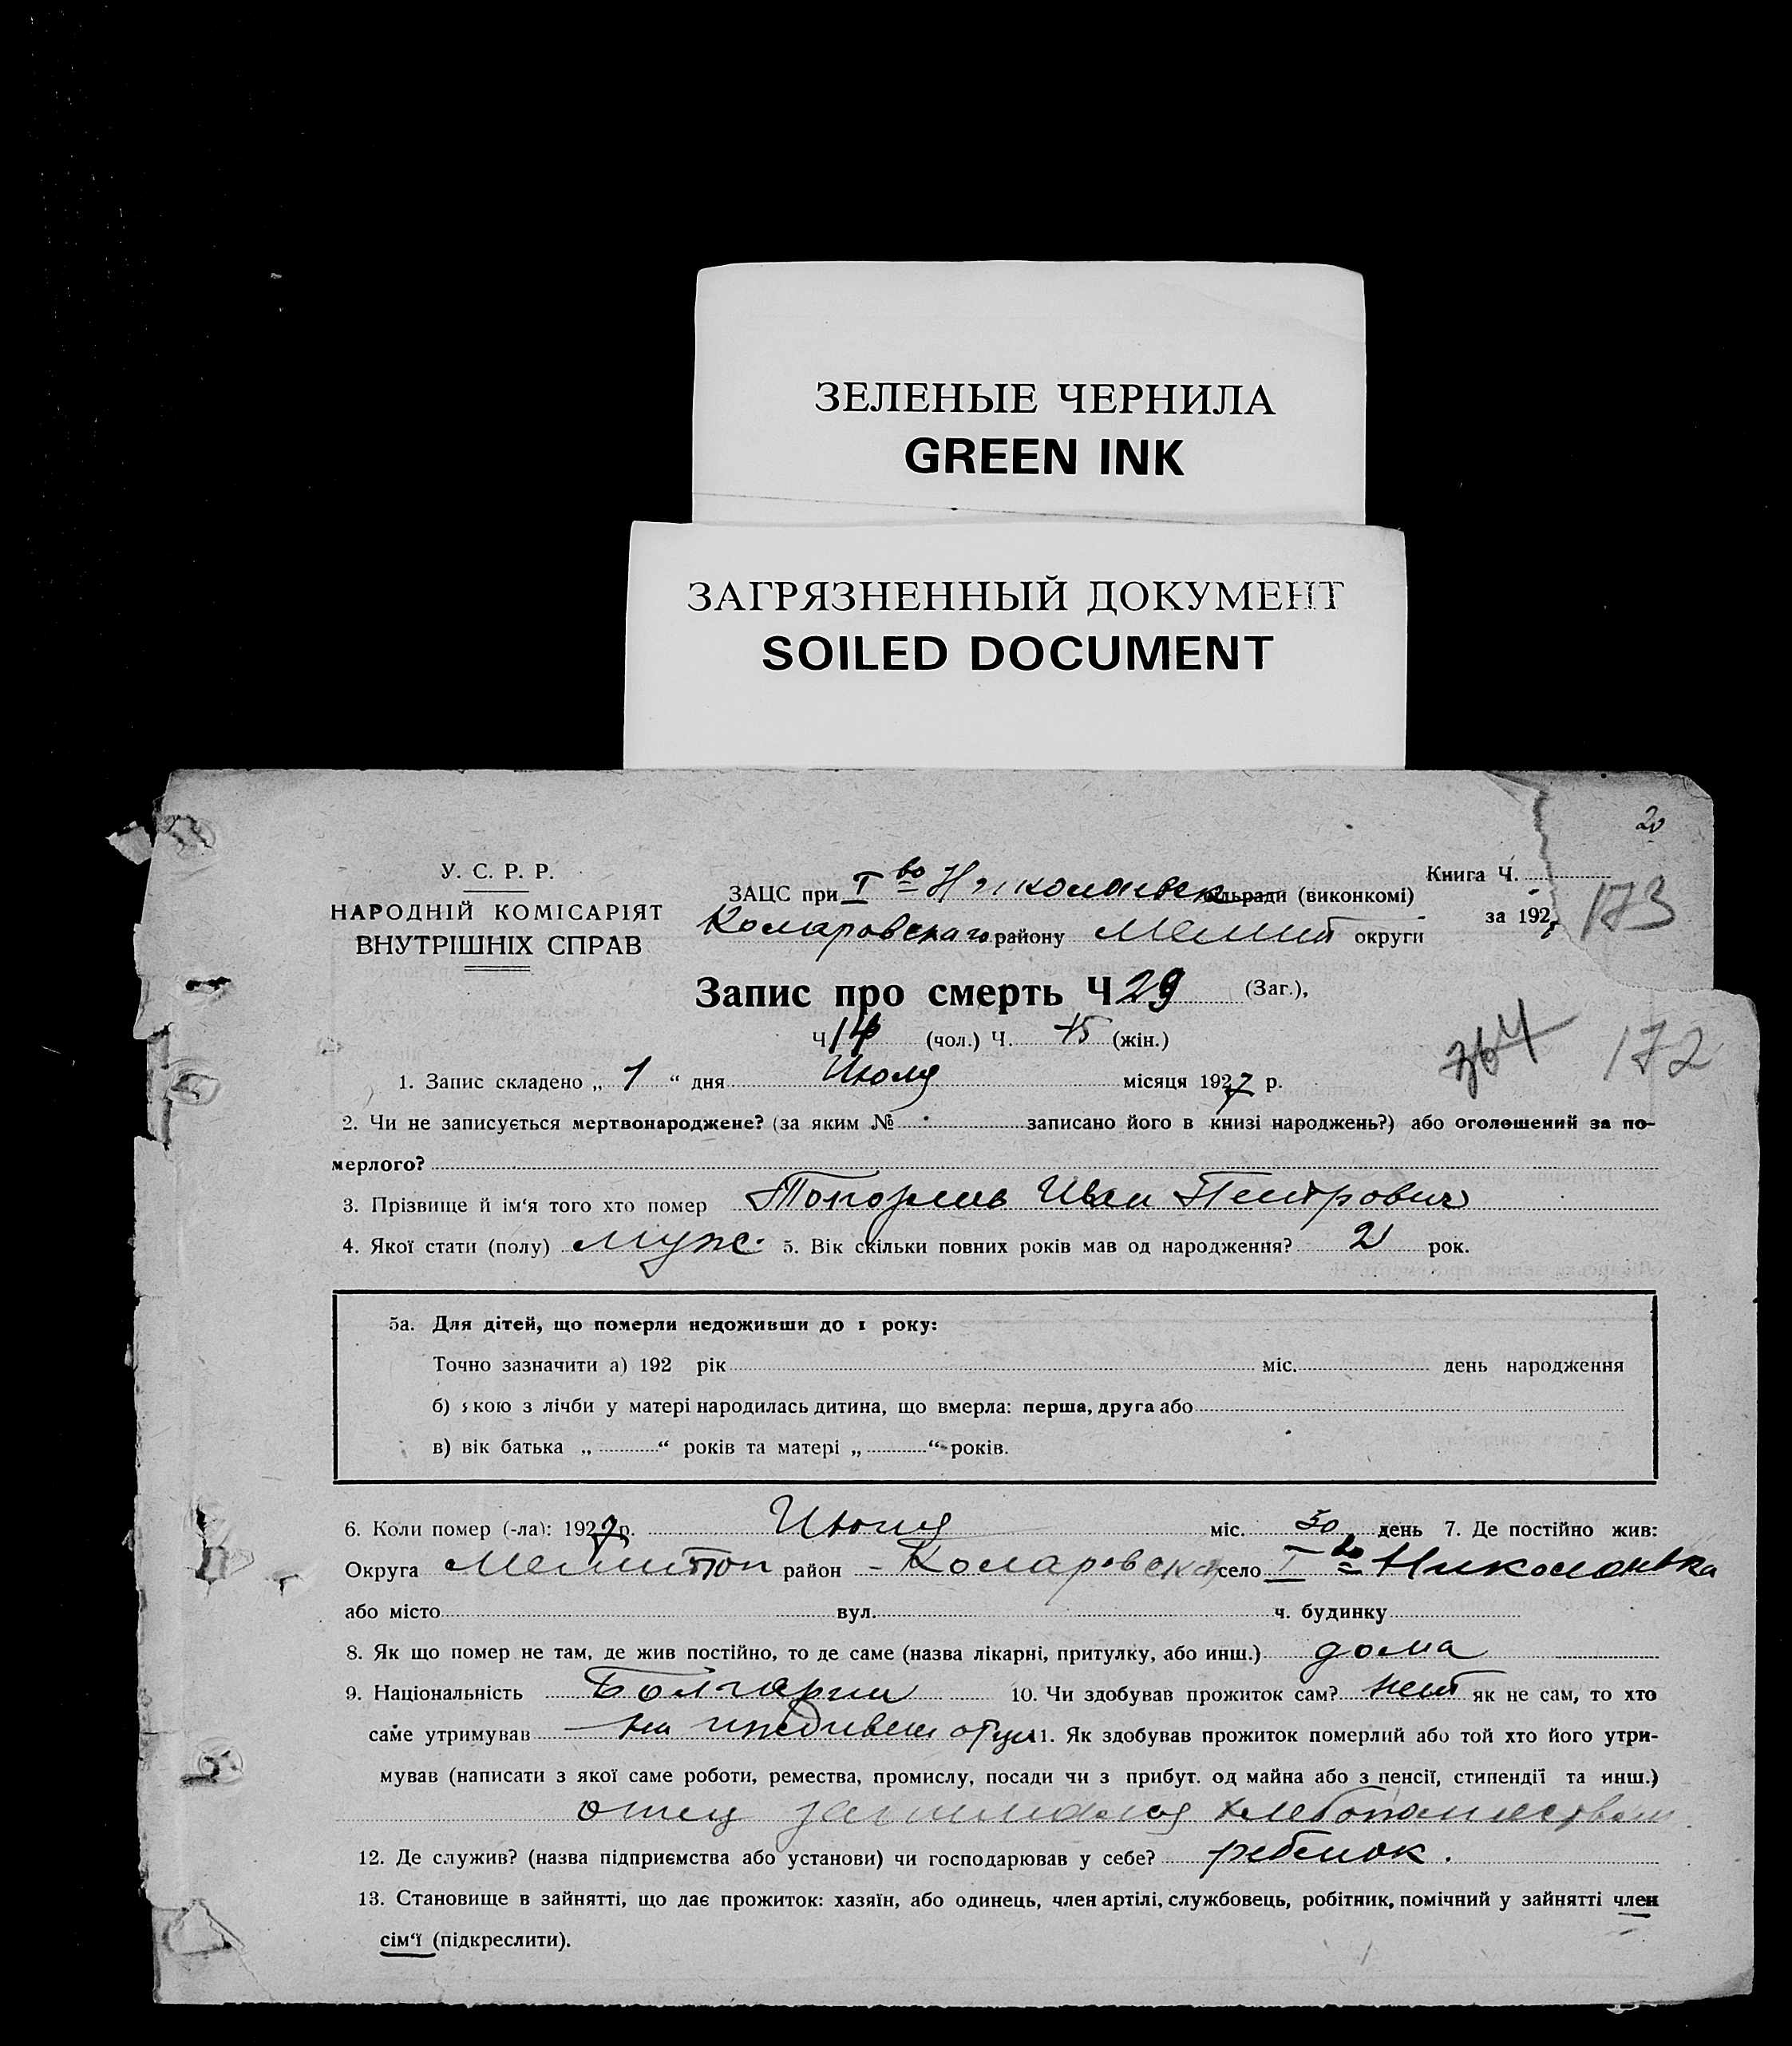 ЗЕЛЕНЫЕ ЧЕРНИЛА
GREEN INK
ЗАГРЯЗНЕННЫЙ ДОКУМЕНТ
SOILED DOCUMENT
20
У. С. Р. Р.
НАРОДНІЙ КОМІСАРІЯТ
ВНУТРІШНІХ СПРАВ
Книга Ч.
ЗАЦС при I во Николаевск сільради (виконкомі)
за 1927
173
Коларовскаго району Мелит округи
Запис про смерть Ч 29 (Заг.),
Ч 14 (чол.) Ч. 15 (жін.)
364 172
1. Запис складено „ 1 “ дня Июля місяця 1927 р.
2. Чи не записується мертвонароджене? (за яким № записано його в книзі народжень?) або оголошений за по-
мерлого?
3. Прізвище й ім‘я того хто помер Иван Петрович
4. Якої стати (полу) муж. 5. Вік скільки повних років мав од народження? 2 рок.
5а. Для дітей, що померли недоживши до 1 року:
Точно зазначити а) 192 рік міс. день народження
б) якою з лічби у матері народилась дитина, що вмерла: перша, друга або
в) вік батька „ “ років та матері „ “ років.
6. Коли помер (-ла): 1927 р. міс. 30 день 7. Де постійно жив:
Округа Мелитоп район Коларовска село I во Николаевка
або місто вул. ч. будинку
8. Як що помер не там, де жив постійно, то де саме (назва лікарні, притулку, або инш.) дома
9. Національність Болгарин 10. Чи здобував прожиток сам? нет як не сам, то хто
саме утримував на иждивен отца 11. Як здобував прожиток померлий або той хто його утри-
мував (написати з якої саме роботи, ремества, промислу, посади чи з прибут. од майна або з пенсії, стипендії та инш.)
отец занимался хлебопашеством
12. Де служив? (назва підприємства або установи) чи господарював у себе? ребенок.
13. Становище в зайнятті, що дає прожиток: хазяїн, або одинець, член артілі, службовець, робітник, помічний у зайнятті член
сім‘ї (підкреслити).